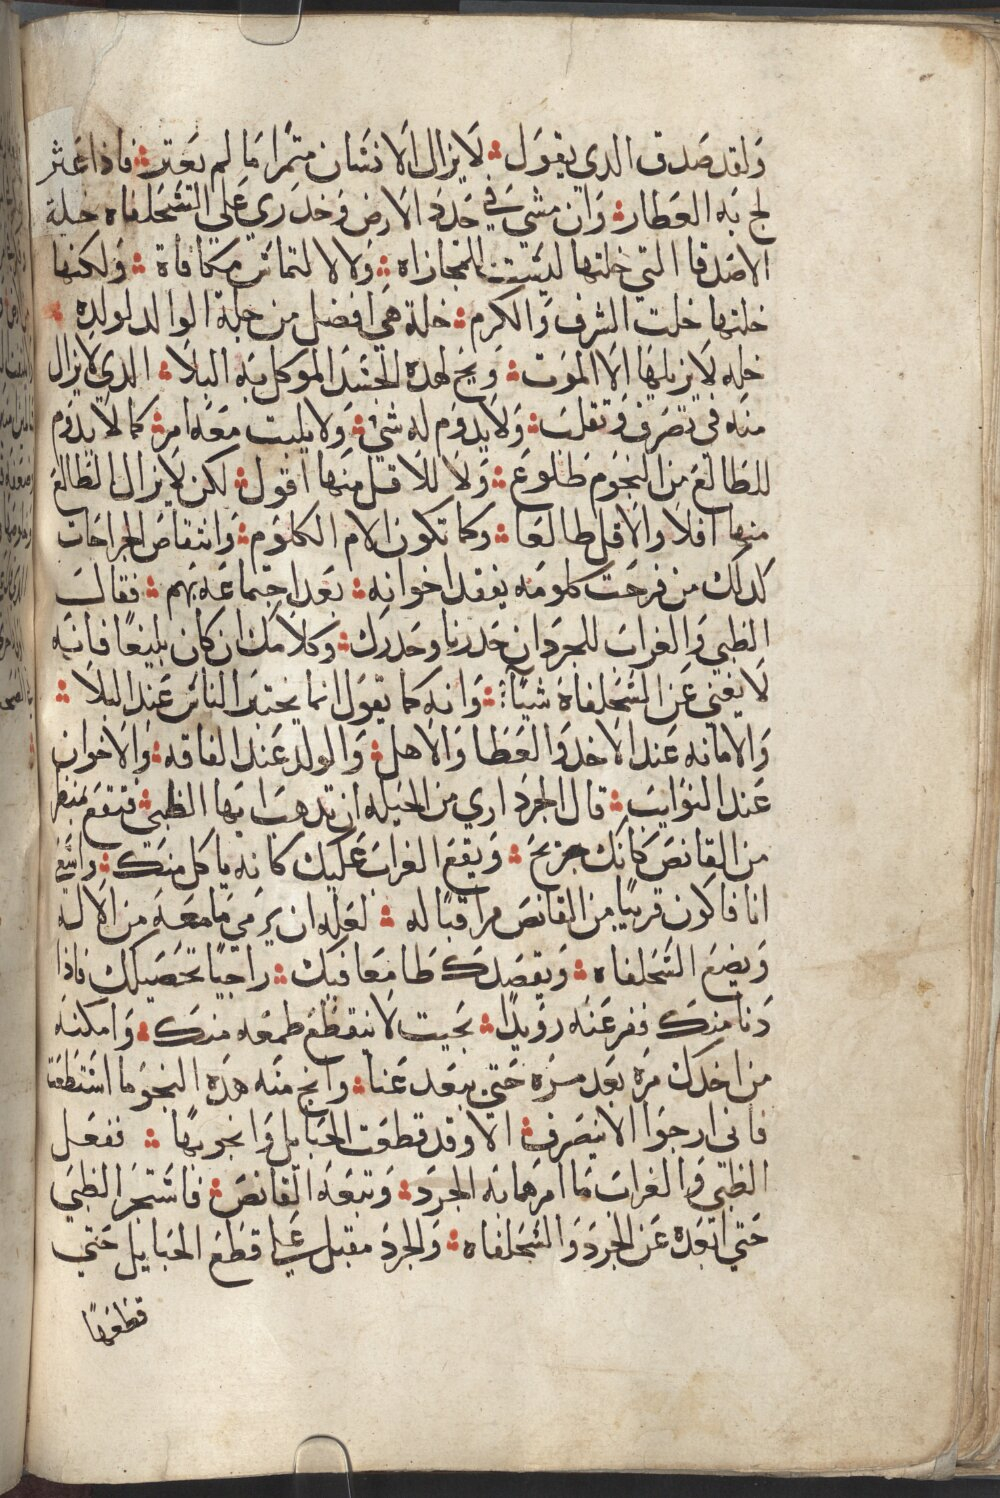 ولقد صدق الدي يقول ؞ لا يزال الانسان متمرا ما لم يعتر ؞ فاذا عثر
لج به العطار ؞ وان مشي في حدد الارض وخدري علي السحلفاه خلة
الاصدقا التي خلتها ليست للمجازاه ؞ ولا لالتماس مكافاة ؞ ولكنها
خلتها خلت الشرف والكرم ؞ خلة هي افضل من خلة الوالد لولده ؞
خله لا يزيلها الا الموت ؞ ويح لهده الجسد الموكل به البلا ؞ الدي لا يزال
منه في تصرف وتقلب ؞ ولا يدوم له شي ؞ ولا يلبت معه امر ؞ كما لا يدوم
للطالع من النجوم طلوع ؞ ولا للافل منها افول ؞ لكن لا يزال الطالع
منها افلا والافل طالعا ؞ وكما تكون الام الكلوم ؞ وانتقاض الجراحات
كدلك من فرحت كلومه بفقد اخوانه ؞ بعد اجتماعه بهم ؞ فقالت
الظبي والغراب للجرد ان حدرنا وحدرك ؞ وكلامك ان كان بليغا فانه
لا يغني عن السحلفاه شيا ؞ وانه كما يقول انما يختبر الناس عند البلا ؞
والامانه عند الاخد والعطا والاهل ؞ والولد عند الفاقه ؞ والاخوان
عند النوايب ؞ قال الجرد اري من الحيله ان تدهب ايها الظبي ؞ فتقع بمنظر
من القانص كانك جريح ؞ ويقع الغراب عليك كانه ياكل منك ؞ واسعي
انا فاكون قريبا من القانص مراقبا له ؞ لعله ان يرمي ما معه من الاله
ويضع السحلفاه ؞ ويقصدك طامعا فيك ؞ راجيا تحصيلك فاذا
دنا منك ففر عنه رويدا ؞ بحيت لا ينقطع طمعه منك ؞ وامكنه
من اخدك مره بعد مره حتي يبعد عنا ؞ وانح منه هده النحو ما استطعت
فاني ارجوا الا ينصرف ؞ الا وقد قطعت الحبايل وانجو بها ؞ ففعل
الظبي والغراب ما امرهما به الجرد ؞ وتبعه القانص ؞ فاستجر الظبي
حتي ابعده عن الجرد والسحلفاه ؞ والجرد مقبل علي قطع الحبايل حتي
قطعها